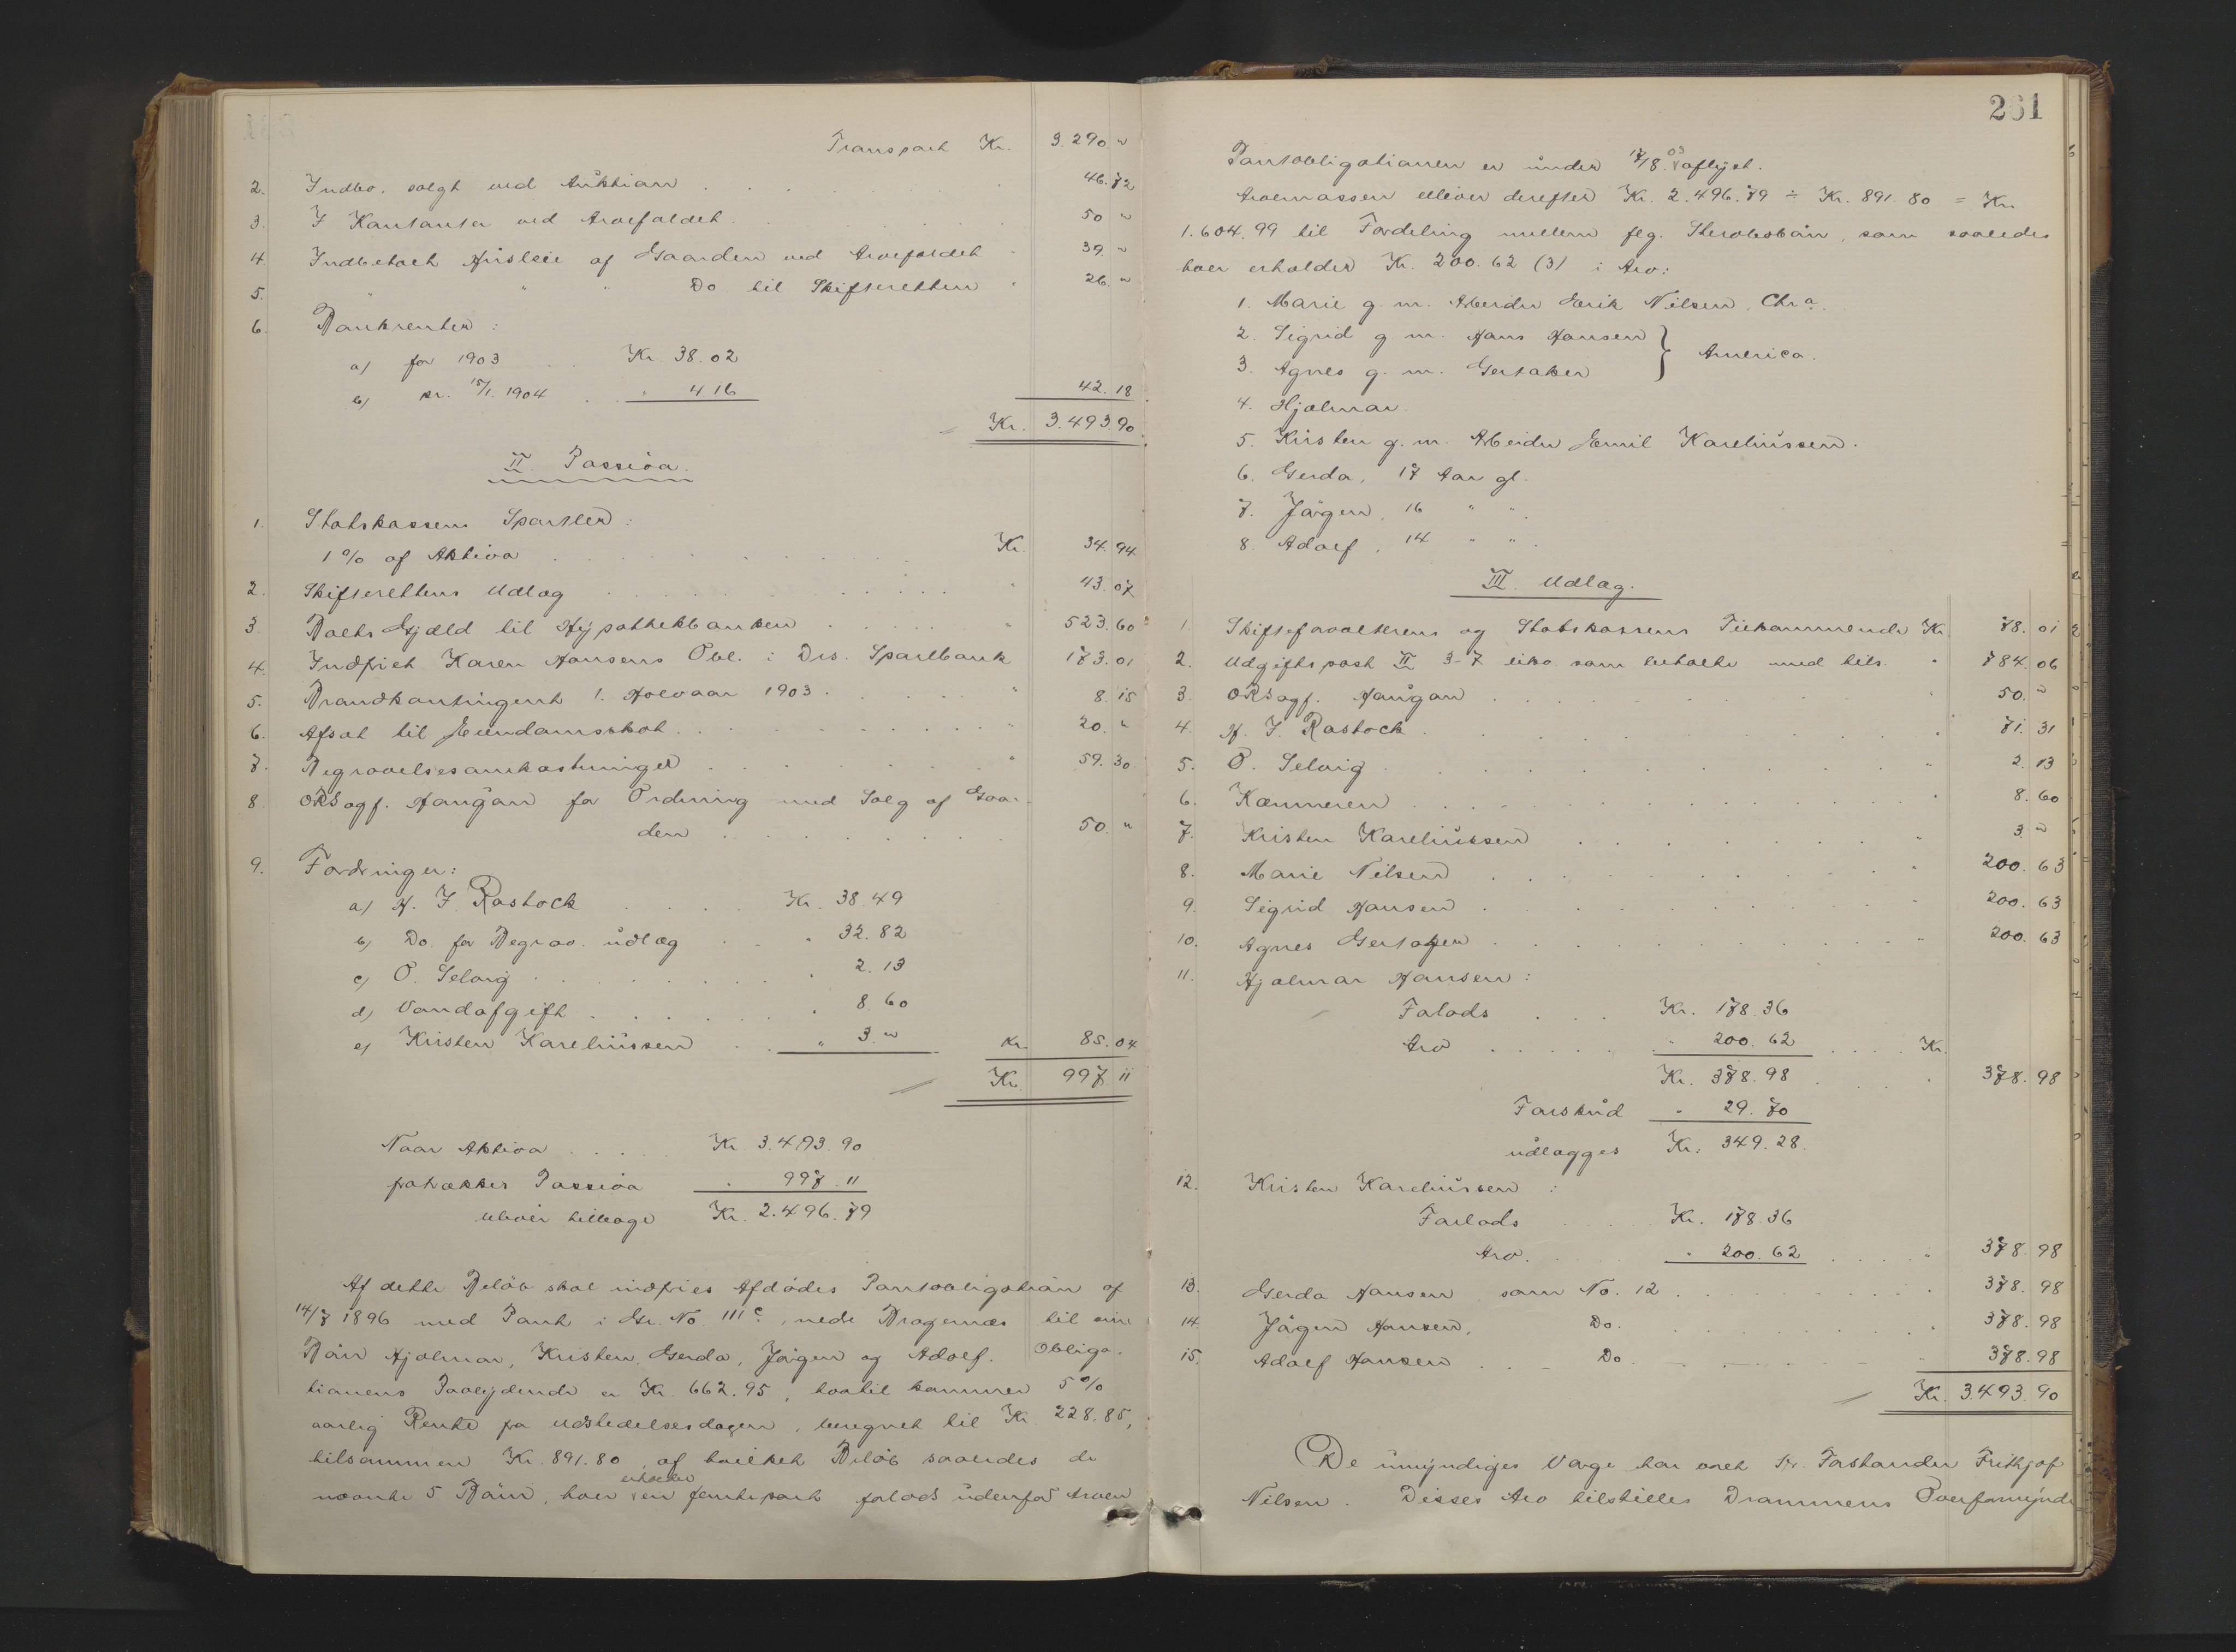 Transport Kr. 3.290 "
2. Indbo, solgt ved Auktion . . . 46.72
3. I Kontanter ved Arvefaldet . . . 50 "
4. Indbetalt Husleie af Gaarden ved Arvefaldet " 39. "
5. " " " Do til Skifteretten " 26. "
6. Bankrenter:
a) for 1903 . . Kr. 38.02
b) pr. 15/1. 1904 . " 4 16 42.18
Kr. 3.493.90
II Passiva.
1. Statskassens Sportler:
1 % af Aktiva . . . Kr. 34.94
2. Skifterettens Udlæg . . . " 43.07
3. Boets Gjæld til Hypothekbanken . . . " 523.60
4. Indfriet Karen Hansens Obl. i Drs. Sparebank 173.01
5. Brandkontingent 1. Halvaar 1903 . . . " 8.15
6. Afsat til Eiendomsskat . . . " 20. "
7. Begravelsesomkostninger . . . " 59.30
8 ORSagf. Haugan for Ordning med Salg af Gaar-
den . . . 50. "
9. Fordringer:
a) H. J. Rastock . . . Kr. 38.49
b) Do. for Begrav. udlæg . . " 32.82
c) O. Selvig . . . " 2.13
d) Vandafgift . . . " 8.60
e) Kristen Kareliussen . . " 3. " Kr. 85.04
Kr. 997 11
Naar Aktiva . . . Kr. 3.493.90
fratrækkes Passiva " 997.11
bliver tilbage Kr. 2.496.79
Af dette Beløb skal indfries Afdødes Pantobligation af
14/7 1896 med Pant i Gr. No. 111 c., nedre Bragernes til sine
Børn Hjalmar, Kristen, Gerda, Jørgen og Adolf. Obliga-
tionens Paalydende er Kr. 662.95, hvortil kommer 5 %
aarlig Rente fra Udstedelsesdagen, beregnet til Kr. 228.85,
tilsammen Kr. 891.80, af hvilket Beløb saaledes de
nævnte 5 Børn, hver erholder en femtepart forlods udenfor Arven
261
Pantobligationen er under 17/8. 03 aflyst.
Arvemassen bliver derefter Kr. 2.496.79 ÷ Kr. 891.80 = Kr.
1.604.99 til Fordeling mellem flg. Sterbobørn, som saaledes
hver erholder Kr. 200.62 (3) i Arv:
1. Marie g. m. Arbeider Erik Nilsen, Chr a.
2. Sigrid g m. Hans Hansen } America.
3. Agnes g. m. Gertaker
4. Hjalmar.
5. Kristen g. m. Arbeider Emil Kareliussen.
6. Gerda, 17 Aar gl.
7. Jørgen, 16 " "
8. Adolf, 14 " "
III. Udlæg.
1. Skifteforvalterens og Statskassens Tilkommende Kr. 78.01
2. Udgiftspost II 3-7 incl. som betalte med tils. " 784.06
3. ORSagf. Haugan . . . " 50. "
4. H. J. Rastock . . . " 71.31
5. O. Selvig . . . " 2.13
6. Kæmneren . . . " 8.60
7. Kristen Kareliussen . . . " 3 "
8. Marie Nilsen . . . " 200.63
9. Sigrid Hansen . . . " 200.63
10. Agnes Gertaker . . . " 200.63
11. Hjalmar Hansen:
Forlods . . . Kr. 178.36
Arv . . . " 200.62 . . . Kr.
Kr. 378.98 . . . " 378.98
Forskud " 29.70
udlægges Kr. 349.28.
12. Kristen Kareliussen:
Forlods Kr. 178.36
Arv. . . " 200.62 . . . " 378.98
13. Gerda Hansen som No. 12 . . . " 378.98
14. Jørgen Hansen, Do. . . . " 378.98
15. Adolf Hansen . . . Do . . . " 378.98
Kr. 3.493.90
De umyndiges Værge har været Hr. Forstander Frithjof
Nilsen. Disses Arv tilstilles Drammens Overformynde